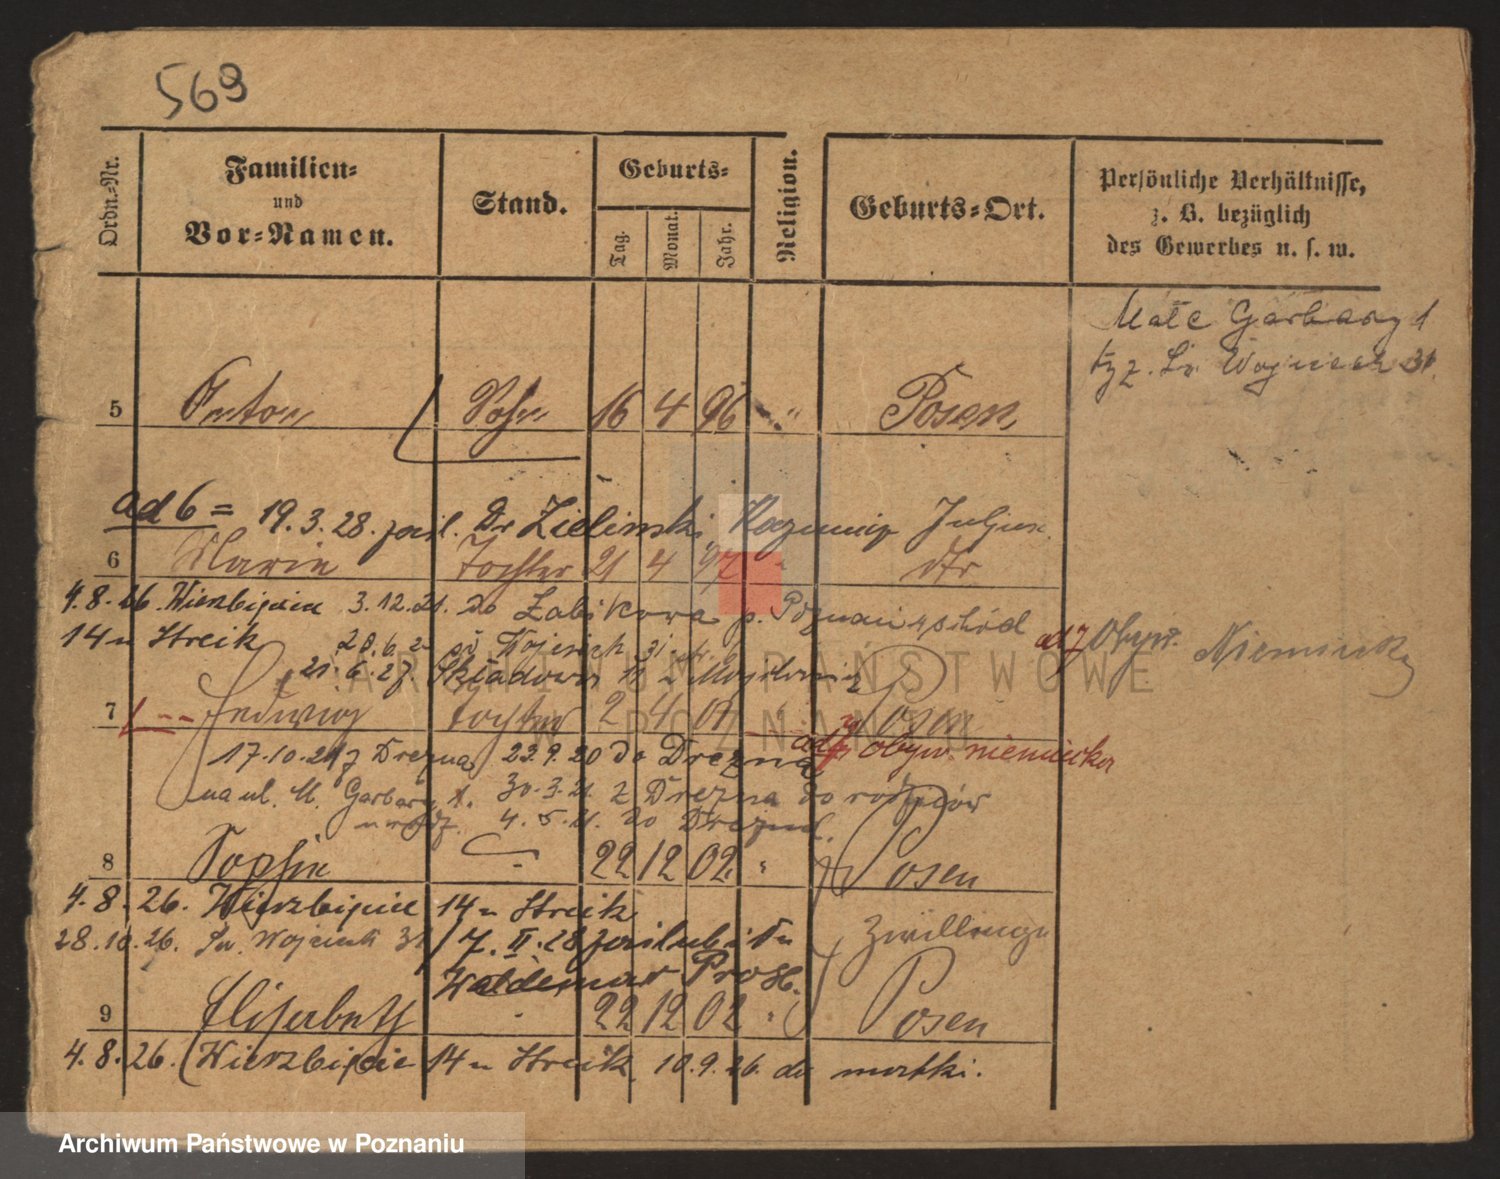 569
Ordn.-Nr.
Familien-
und
Vor-Namen.
Stand.
Geburts-
Tag.
Monat.
Jahr.
Religion.
Geburts-Ort.
Persönliche Verhältnisse,
z. B. bezüglich
des Gewerbes u. s. w.
Małe Garbary 1
Św. Wojciech 31.
5 Anton Sohn 16 4 96 " Posen
ad 6 = 19.3.28. Dr Zielinski, Kazimierz Juljusz
6 Marie Tochter 21 4 97 " dto
4.8.26. Wierzbięcice 3.12.21. do Żabikowa p. Poznań
14 u Streik 28.6.2 św Wojciech 31
21.6.27. Składowa
ad 7 Obyw. Niemiecki
7 Hedwig Tochter 2 4 01 " Posen
17.10.21 z Drezna 23.9.20 do Drezna ad 7 obyw. niemiecka
na ul. M. Garbary 1. 30.3.21. z Drezna do rodziców
4.5.21. do Drezna.
8 Sophie " 22 12 02 " Posen
4.8.26. Wierzbięcice 14 u Streik
28.10.26. Św. Wojciech 31 7.II.28 zaślubiła
Zwillinge
Waldemar
9 Elisabeth " 22 12 02 " Posen
4.8.26. Wierzbięcice 14 u Streik. 10.9.26. do matki.
ARCHIWUM PAŃSTWOWE
W POZNANIU
Archiwum Państwowe w Poznaniu